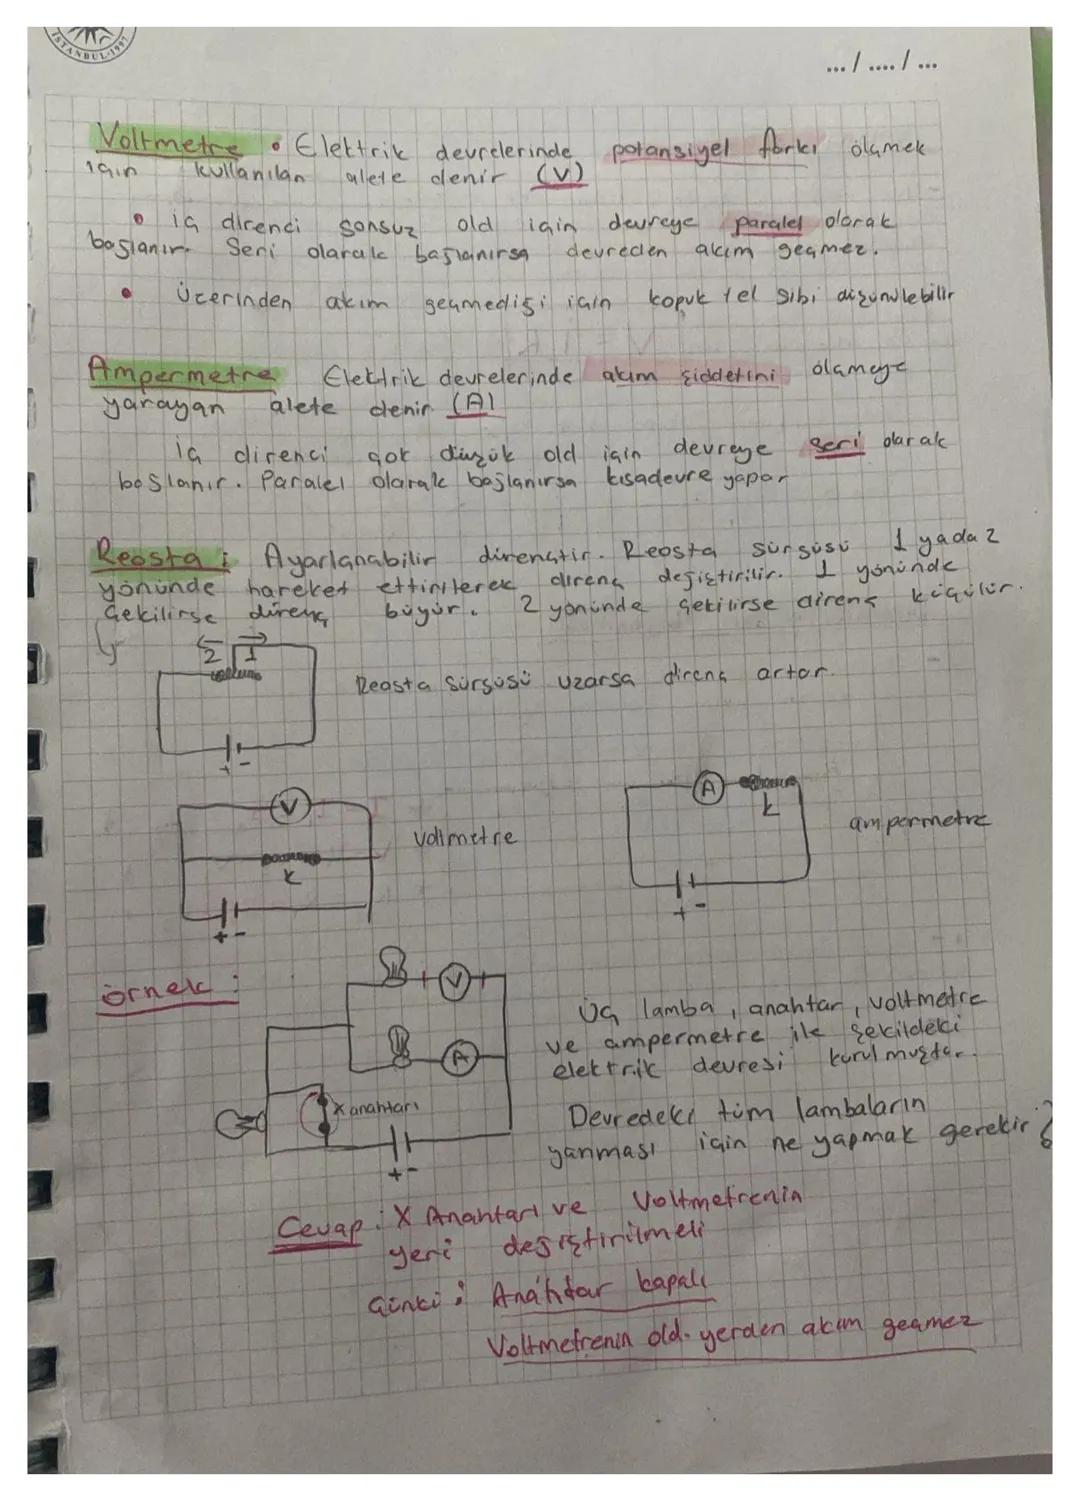 İSTANBUL-1997
... / .... / ...
Voltmetre • Elektrik devrelerinde potansiyel farkı ölçmek
için kullanılan alete denir (V)
• iç direnci sonsuz old için devreye paralel olarak
bağlanır. Seri olarak bağlanırsa devreden akım geçmez.
• Üzerinden akım geçmediği için kopuk tel gibi düşünülebilir
Ampermetre Elektrik devrelerinde akım şiddetini ölçmeye
yarayan alete denir (A)
iç direnci çok düşük old için devreye seri olarak
bağlanır. Paralel olarak bağlanırsa kısadevre yapar
Reosta : Ayarlanabilir dirençtir. Reosta sürgüsü 1 yada 2
yönünde hareket ettirilerek direnç değiştirilir. 1 yönünde
çekilirse direnç büyür. 2 yönünde çekilirse direnç küçülür.
2 1
Reosta sürgüsü uzarsa direnç artar.
+ -
V
voltmetre
k
+ -
A
k
ampermetre
+ -
örnek :
V
A
X anahtarı
+ -
Üç lamba, anahtar, voltmetre
ve ampermetre ile şekildeki
elektrik devresi kurulmuştur.
Devredeki tüm lambaların
yanması için ne yapmak gerekir?
Cevap : X Anahtarı ve Voltmetrenin
yeri değiştirilmeli
Çünkü : Anahtar kapalı
Voltmetrenin old. yerden akım geçmez